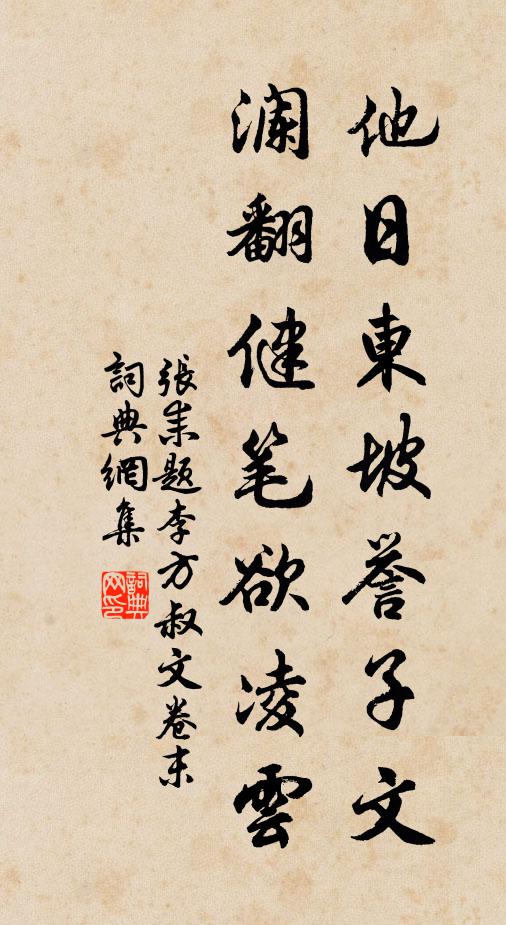 他日東坡誉子文
澜翻健笔欲凌雲
張耒題李方叔文卷末
詞典網集
詞典网印